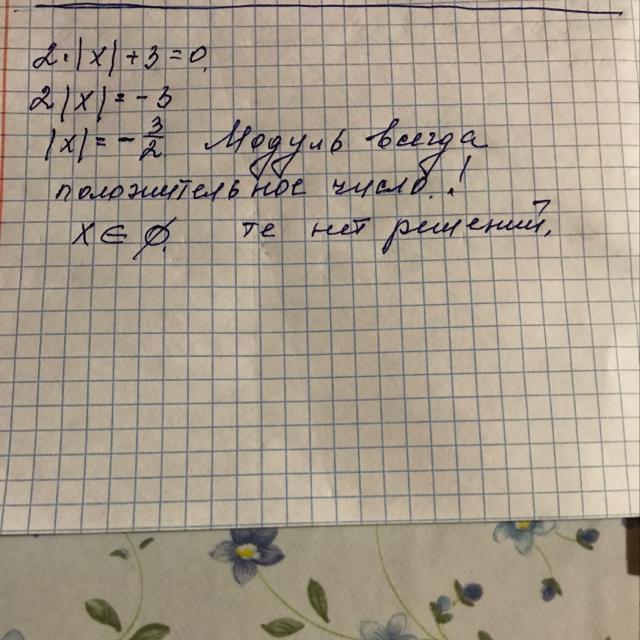 2·|x|+3=0
2|x|=-3
|x|=-3/2 Модуль всегда
положительное число.!
x∈∅. те нет решений.